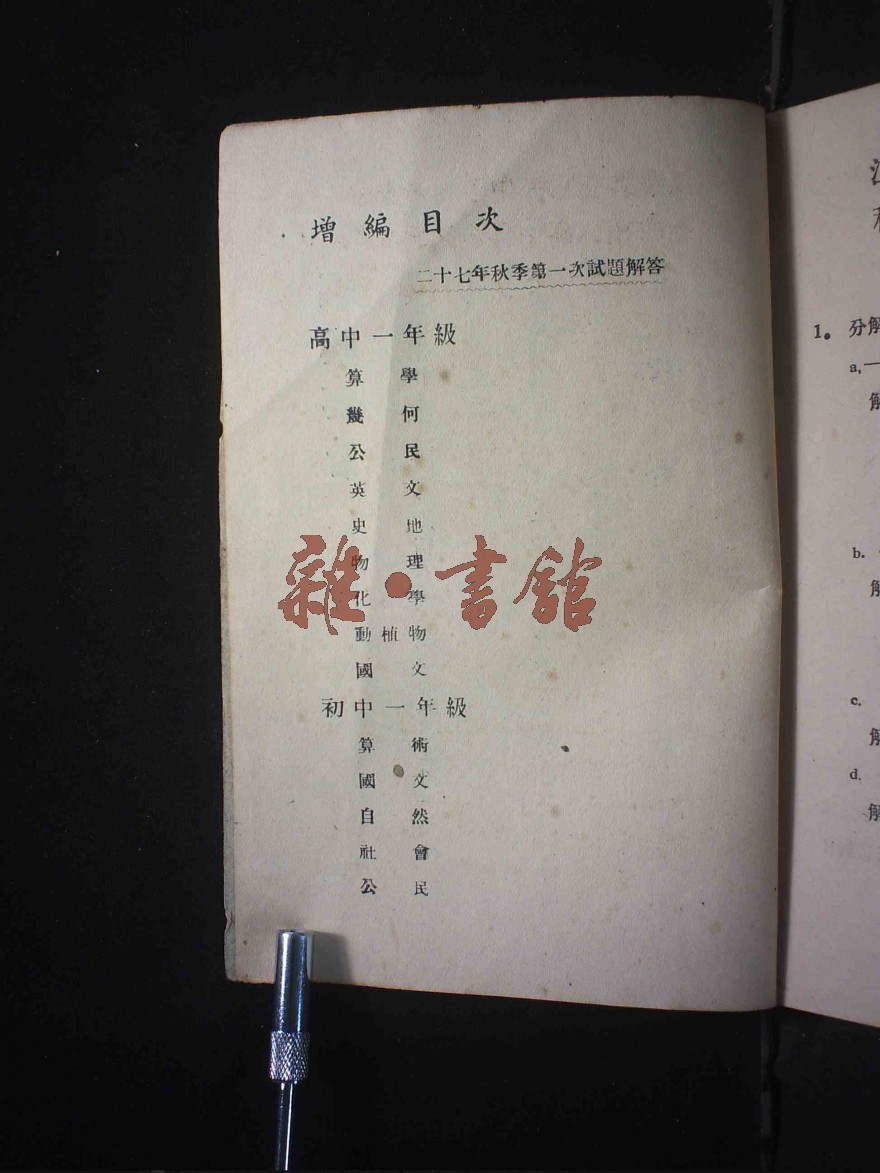 增編目次
二十七年秋季第一次試題解答
高中一年級
算學
幾何
公民
英文
史地
物理
化學
動植物
國文
初中一年級
算術
國文
自然
社會
公民
雜·書館
1。分解
a,一
解
b.
解
c.
解
d.
解